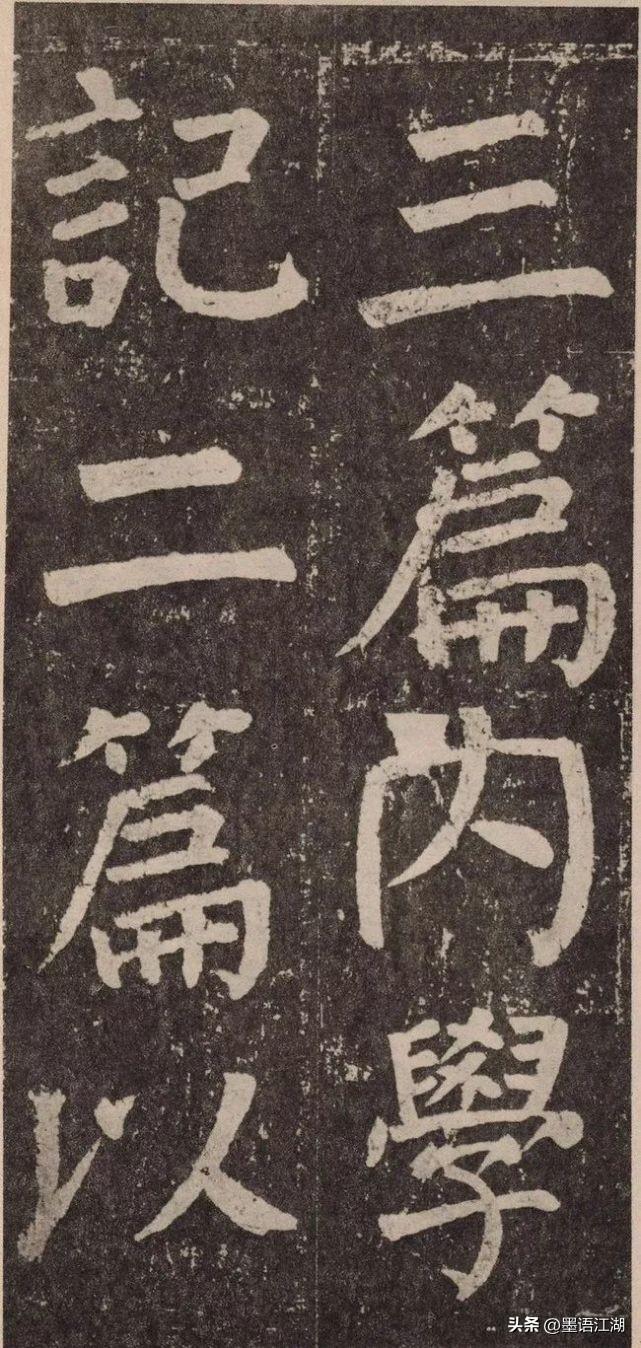 三篇内學
記二篇以
头条 @墨语江湖